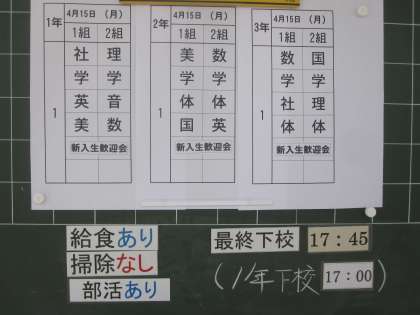 1年 4月15日 (月)
1組 2組
1
社 理
学 学
英 音
美 数
新入生歓迎会
2年 4月15日 (月)
1組 2組
1
美 数
学 学
体 体
国 英
新入生歓迎会
3年 4月15日 (月)
1組 2組
1
数 国
学 学
社 理
体 体
新入生歓迎会
給食あり
掃除なし
部活あり
最終下校 17:45
(1年下校 17:00)